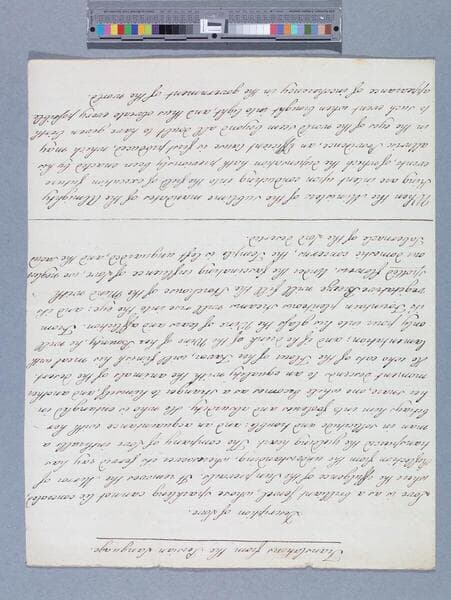 Translations from the Persian Language
Description of Love.
Love is as a brilliant jewel, whose sparkling cannot be concealed,
where the effulgence of the Sun prevails. It removes the Moon of
Reflection from the understanding, whensoever its fervid ray has
transfixed the yielding heart. The company of Love
man in solitude and and an acquaintance with her
betray him into jealousy and adversity. He who is entangled in
her snare one while becomes as strange to himself, and another
moment descends to an equality with the animals of the desert
He who eats of the of the will finish his meal with
lamentation; and if he drinks of the Wine of her Beauty, he will
only pour into his glass the Wine of tears and affliction. From
its Fountain plenteous streams will run into the eye, and its
Breeze will fill the of the Mind with
Under the fascinating influence of Love we neglect
our domestic concerns, the Temple is left unguarded, and the sacred
Tabernacle of the deserted.
When the Miracles of the sublime mandates of the Almighty
King are intent upon conducting into the field of execution future
events, of which the dispensation has previously been enacted by his
Providence an Efficient cause is first produced which may
in the eyes of the world seem beyond all doubt to have given birth
to such event when brought into light and thus obviate every possible
appearance of inconstancy in the government of the world.